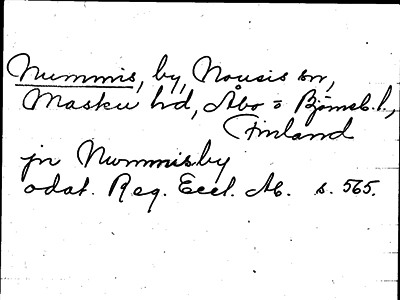 Nummis, by, Nousis sn,
Masku hd, Åbo = Björneb. l.,
Finland
jn Nummisby
odat. Reg. Eccl. Ab. s. 565.